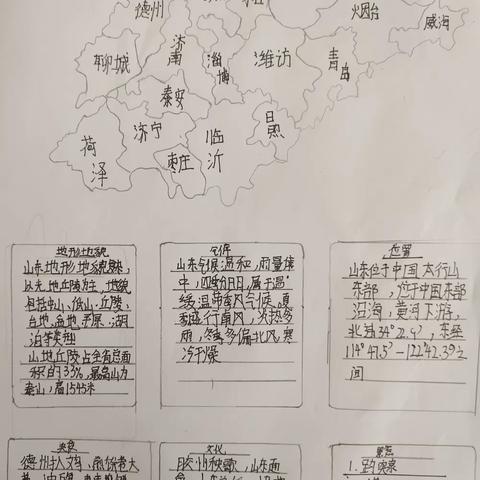 德州
烟台
威海
聊城
济南
淄博
潍访
青岛
泰安
日照
菏泽
济宁
枣庄
临沂
地形地貌
山东地形
以
台地、盆地、平原、湖
泊等类型
山地丘陵占全省总面
积的33%,最高山为
泰山,高1545米
气候
山东气候温和,雨量集
中,四季分明,属于温
暖温带季风气候,夏
季盛行南风,炎热多
雨,冬季多偏北风,寒
冷干燥
位置
山东位于中国太行山
东部,位于中国东部
沿海,黄河下游,
北纬34°22.9′,东经
114°47.5′-122°42.39之
间
美食
德州扒鸡、
文化
胶州秧歌,山东面
景点
1.趵突泉